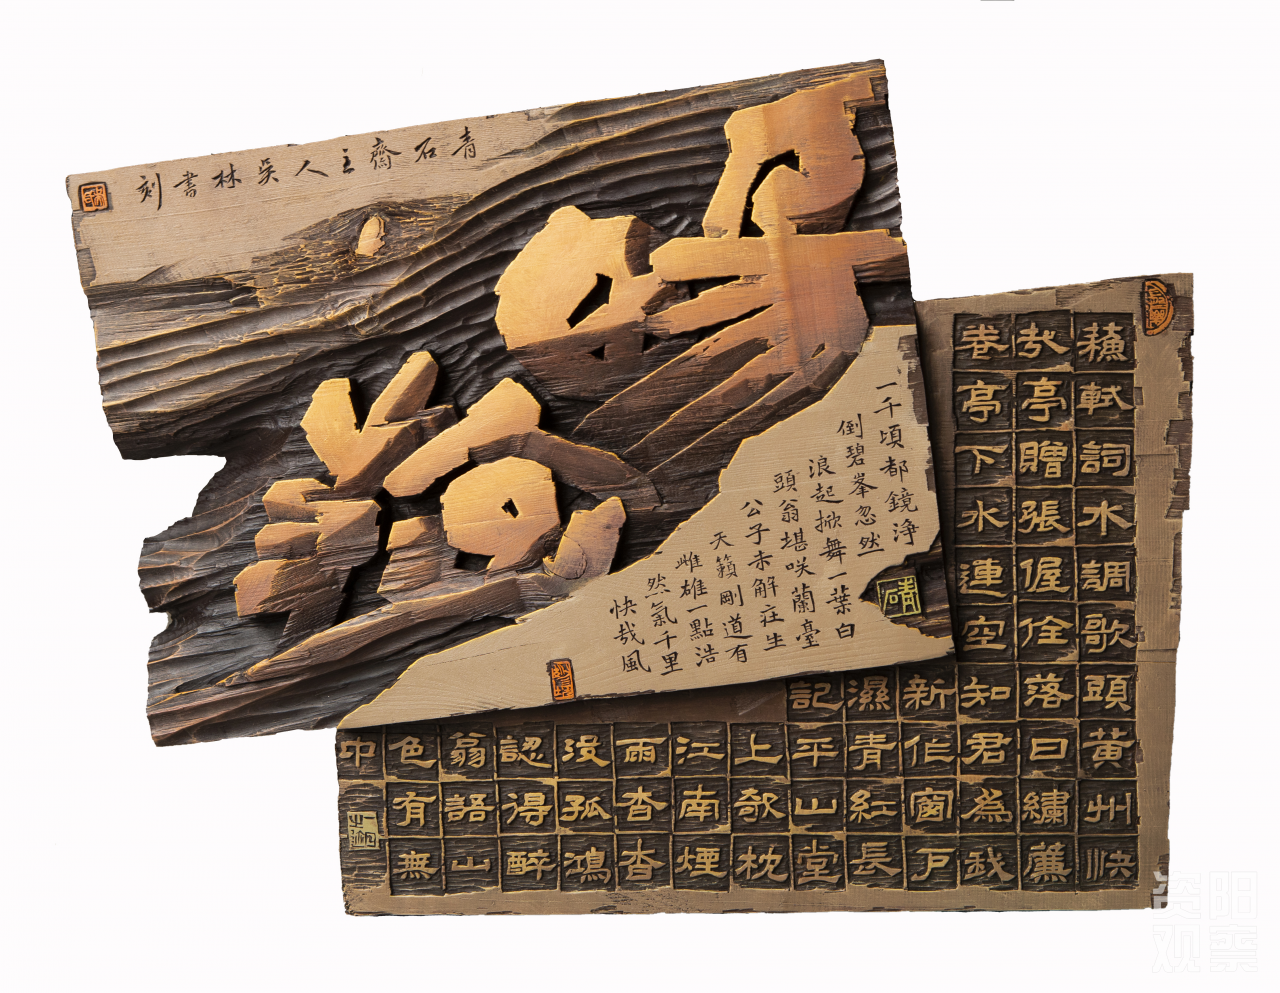 青石齋主人吳林書刻
一千頃都鏡淨
倒碧峯忽然
浪起掀舞一葉白
頭翁堪咲蘭臺
公子未解莊生
天籟剛道有
雌雄一點浩
然氣千里
快哉風
蘇軾詞水調歌頭黃州快
哉亭贈張偓佺落日繡簾
卷亭下水連空知君為我
新作窗戶
濕青紅長
記平山堂
上欹枕
江南煙
雨杳杳
沒孤鴻
認得醉
翁語山
色有無
中
资阳
观察